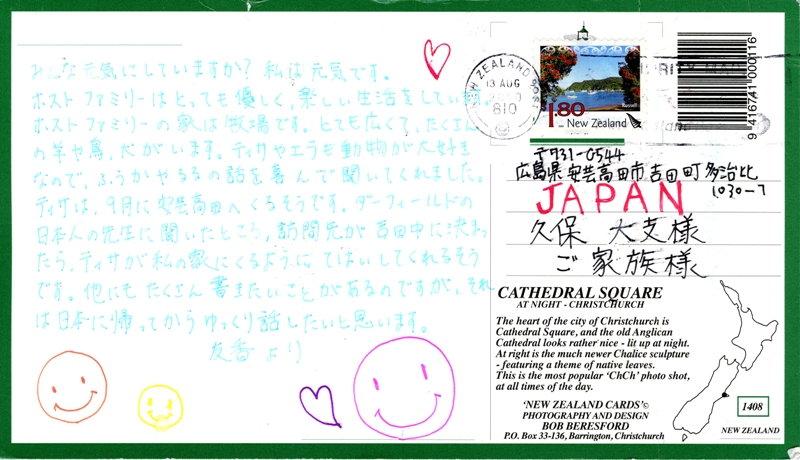 みんな元気にしていますか？私は元気です。
ホストファミリーはとっても優しく、楽しい生活をしています。
ホストファミリーの家は牧場です。とても広くて、たくさん
の羊や鳥、犬がいます。ティサやエラも動物が大好き
なので、ふうかやるるの話を喜んで聞いてくれました。
ティサは、9月に安芸高田へくるそうです。ダーフィールドの
日本人の先生に聞いたところ、訪問先が吉田中に決まっ
たら、ティサが私の家にくるようにてはいしてくれるそう
です。他にもたくさん書きたいことがあるのですが、それ
は日本に帰ってからゆっくり話したいと思います。
友香より
NEW ZEALAND POST
13 AUG
810
1.80
New Zealand
Russell
9 416741 000116
〒731-0544
広島県安芸高田市吉田町多治比
1030-7
JAPAN
久保 大支様
ご家族様
CATHEDRAL SQUARE
AT NIGHT - CHRISTCHURCH
The heart of the city of Christchurch is
Cathedral Square, and the old Anglican
Cathedral looks rather nice - lit up at night.
At right is the much newer Chalice sculpture
- featuring a theme of native leaves.
This is the most popular 'ChCh' photo shot,
at all times of the day.
'NEW ZEALAND CARDS'©
PHOTOGRAPHY AND DESIGN
BOB BERESFORD
P.O. Box 33-136, Barrington, Christchurch
1408
NEW ZEALAND